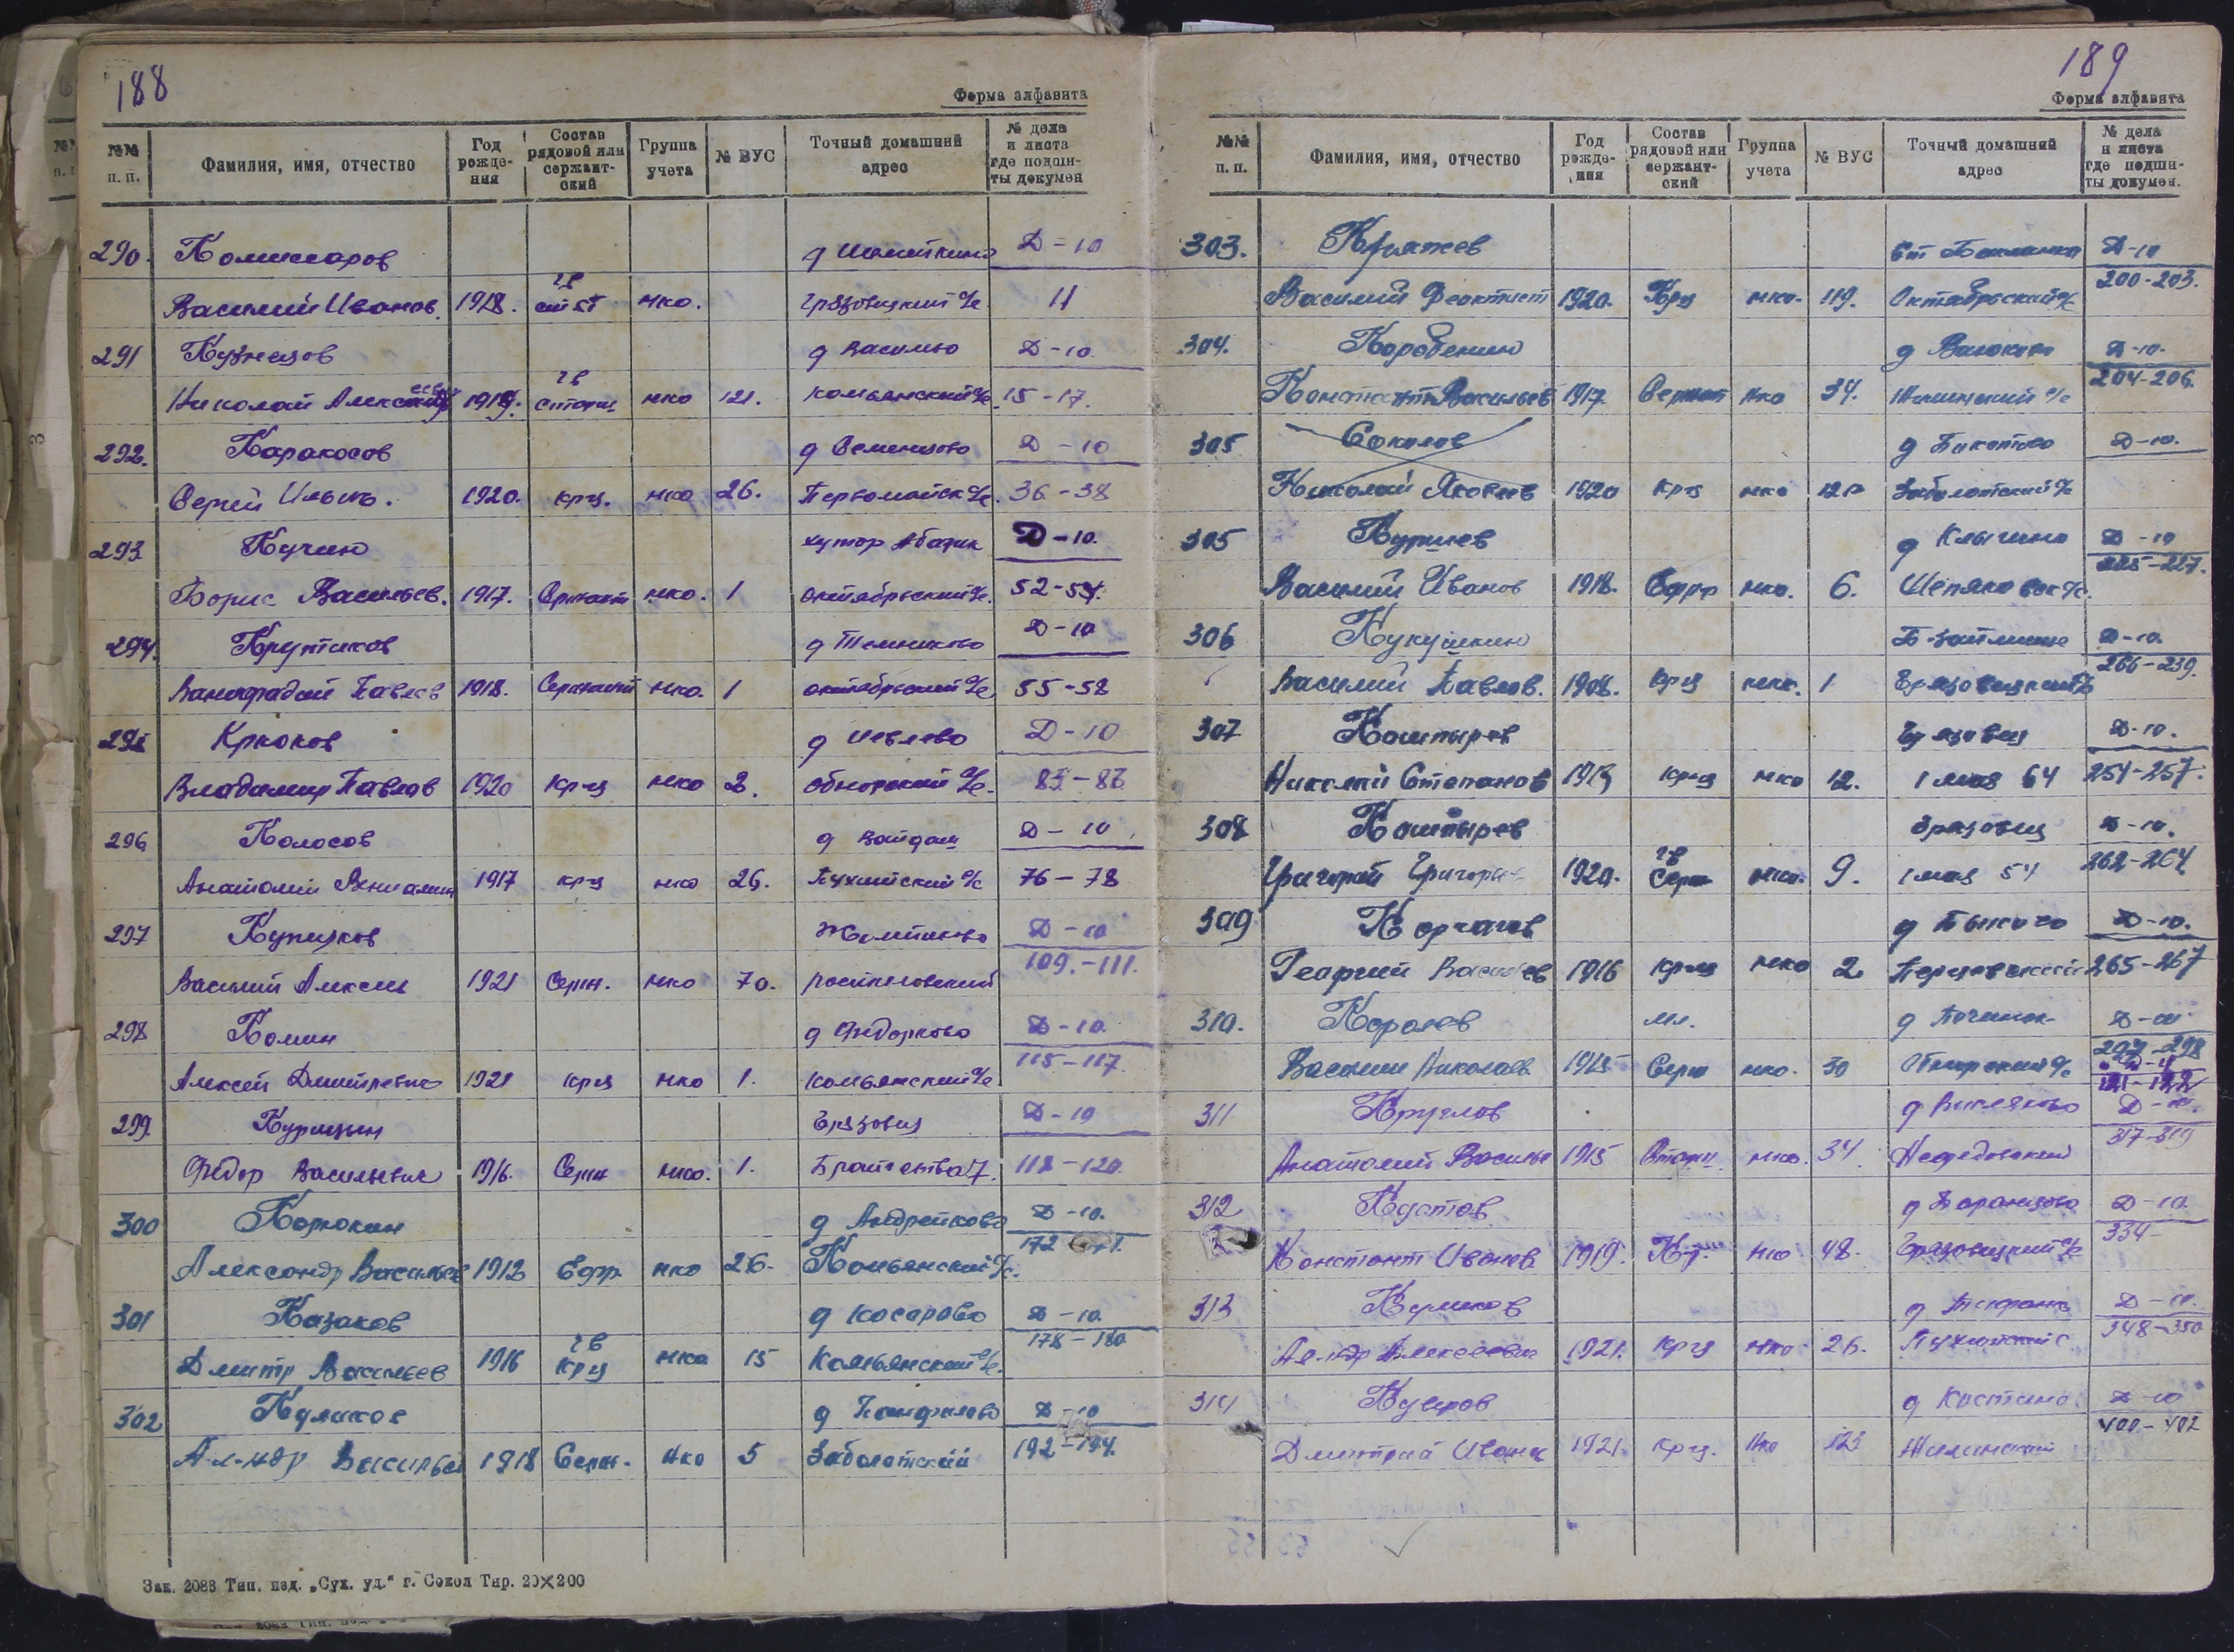 188
Форма алфавита
№№ п. п. Фамилия, имя, отчество Год рожде-ния Состав рядовой или сержант-ский Группа учета № ВУС Точный домашний адрес № дела и листа где подши-ты докумен
290. Комиссаров д Д-10
Василий Иванов. 1918. гв ст st нко. Грязовецкий с/с 11
291 Кузнецов д Васильво Д-10.
Николай Алексеев 1919. гв нко 121. Комьянский с/с 15-17.
292. Каракосов д Семенцово Д-10
Сергей Ильич. 1920. крц. нко 26. Первомайск с/с. 36-38
293 Кучин хутор Д-10.
Борис Васильев. 1917. Сержант нко. 1 октябрьский с/с. 52-54.
294. Крутиков д Темниково Д-10
Павлов 1918. Сержант нко. 1 октябрьский с/с 55-58
295 Крюков д Иевлево Д-10
Владимир Павлов 1920 кр-ц нко 2. Обнорский с/с. 83-86
296 Колосов д Вайдаш Д-10.
Анатолий 1917 кр-ц нко 26. Пухитский с/с 76-78
297 Купцков Д-10
Василий Алексее 1921 Серж. нко 70. 109.-111.
298 Комин д Федорково Д-10.
Алексей Дмитревич 1921 крц нко 1. Комьянский с/с 115-117.
299. Курицын Грязовец Д-10
Федор Васильевич 1916. Серж нко. 1. Братства 7. 118-120.
300 Корюкин д Андрейково Д-10.
Александр Васильев 1913 Ефр. нко 26. Комьянский с/с. 172
301 Казаков д Косарово Д-10.
Дмитр Васильев 1916 гв крц нко 15 Комьянский с/с. 178-180
302 Куликов д Панфилово Д-10
Ал-ндр Василье 1918 Серж. нко 5 Заболотский 192-194.
Зак. 2088 Тип. изд. „Сух. уд.“ г. Сокол Тир. 20×200
189
Форма алфавита
№№ п. п. Фамилия, имя, отчество Год рожде-ния Состав рядовой или сержант-ский Группа учета № ВУС Точный домашний адрес № дела и листа где подши-ты докумен.
303. Кряжев ст Бакланка Д-10
Василий Феоктист 1920. Крц нко. 119. Октябрьский с/с 200-203.
304. Коробенин д Д-10.
Констант Васильев 1917. Сержант нко 34. с/с 204-206.
305 Соколов д Д-10.
Николай Яковлев 1920 кр-ц нко 121 Заболотский с/с
305 Д-10
Василий Иванов 1918. Ефр нко. 6. с/с. 225-227.
306 Кукушкин Д-10.
Василий Павлов. 1908. кр-ц нко. 1 Грязовецкий с/с 239.
307 Каштырев Грязовец Д-10.
Николай Степанов 1913 кр-ц нко 12. 1 мая 64 254-257.
308 Каштырев Грязовец Д-10.
Григорий Григорьев 1920. гв Серж нко. 9. 1 мая 54 262-264
309 Корчагов д Быково Д-10.
Георгий Васильев 1916 кр-ц нко 2 Перцевский 265-267
310. Королев мл. д Починок Д-10
Василий Николаев 1925 Серж нко. 30 с/с 297-298
121-122
311 Круглов д Д-10.
Анатолий Василье 1915 Старш нко. 34. Нефедовский 317-319
312 Кустов д Баранцово Д-10.
Констант Иванов. 1919. Кр. нко 48. Грязовецкий с/с 334-
313 Куликов д Д-10.
Ал-ндр Алексеевич 1921. кр-ц нко 26. Пухитский с 348-350
314 Кувиров д Костино Д-10
Дмитрий Иванов 1921. кр-ц. нко 123 Жилинский 400-402